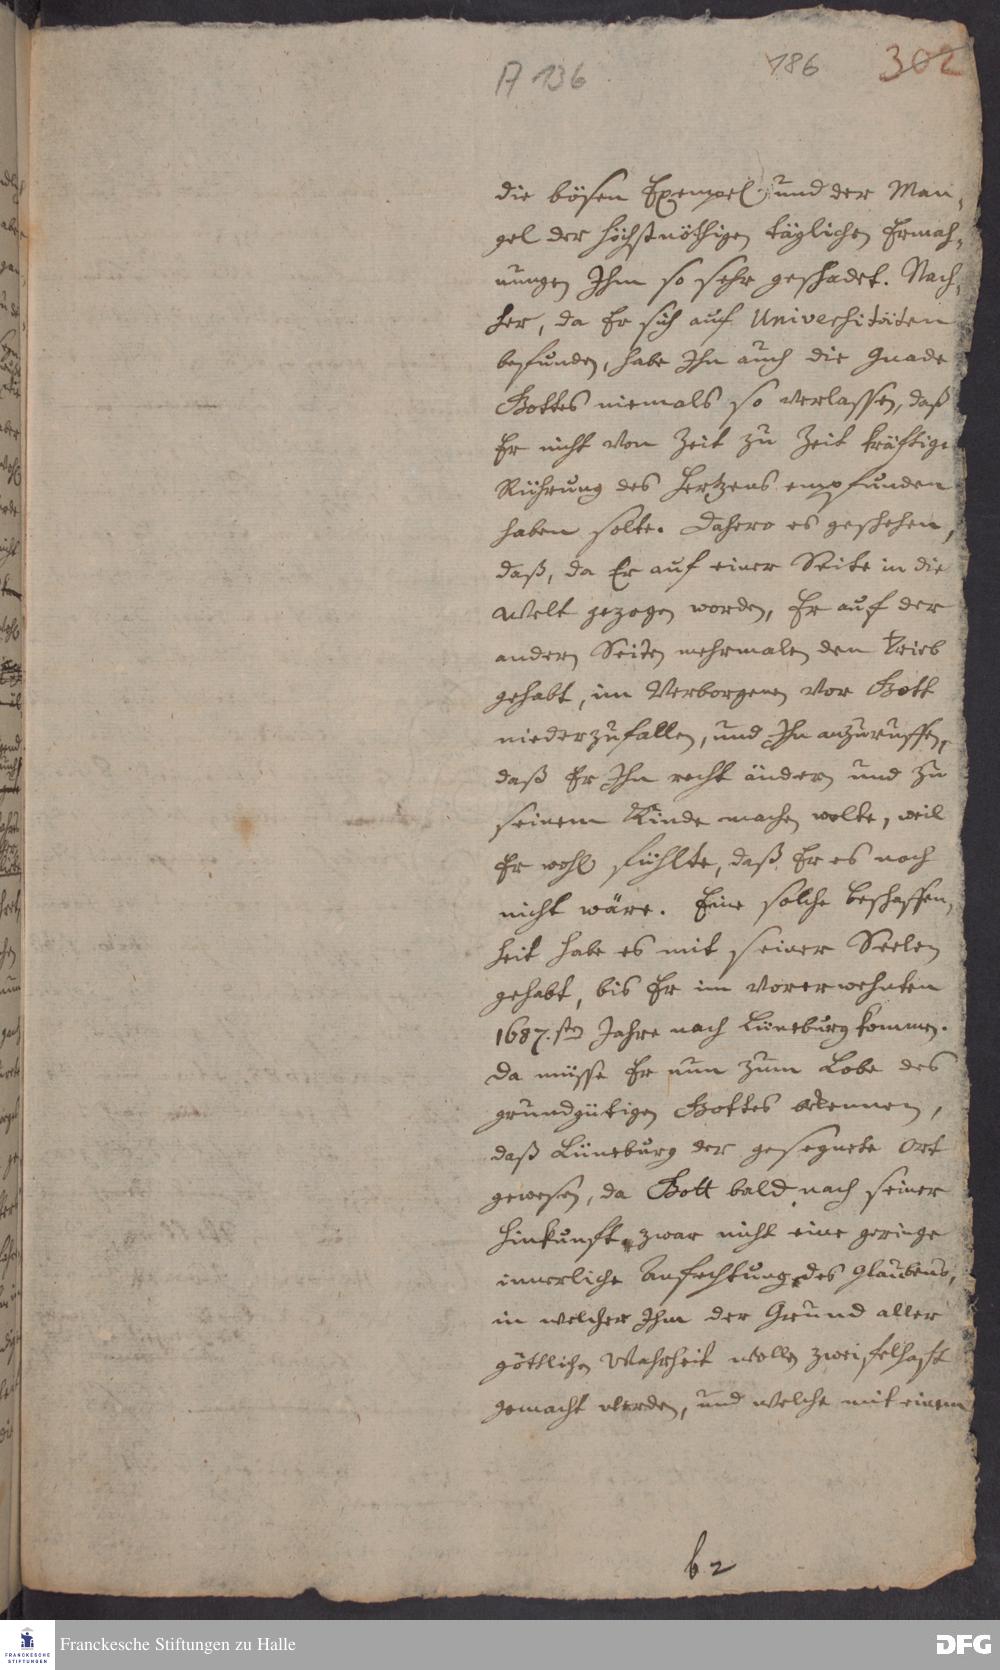 A 136 186 302
die bösen Exempel und der Man-
gel der höchstnöthigen täglichen Ermah-
nungen Ihm so sehr geschadet. Nach-
her, da Er sich auf Universitäten
befunden, habe Ihn auch die Gnade
Gottes niemals so verlassen, daß
Er nicht von Zeit zu Zeit kräftige
Rührung des Hertzens empfunden
haben solte. Dahero es geschehen,
daß, da Er auf einer Seite in die
Welt gezogen worden, Er auf der
andern Seiten mehrmalen den Trieb
gehabt, im Verborgenen vor Gott
niederzufallen, und Ihn anzuruffen,
daß Er Ihn recht ändern und zu
seinem Kinde machen wolte, weil
Er wohl fühlte, daß Er es noch
nicht wäre. Eine solche Beschaffen-
heit habe es mit seiner Seelen
gehabt, bis Er im vorerwehnten
1687.sten Jahre nach Lüneburg kommen.
Da müsse Er nun zum Lobe des
grundgütigen Gottes erkennen,
daß Lüneburg der gesegnete Ort
gewesen, da Gott bald nach seiner
Hinkunft zwar nicht eine geringe
innerliche Anfechtung des Glaubens,
in welcher Ihm der Grund aller
göttlichen Wahrheit wollen zweifelhaft
gemacht werden, und welche mit einem
b2
Franckesche Stiftungen zu Halle
FRANCKESCHE STIFTUNGEN
DFG